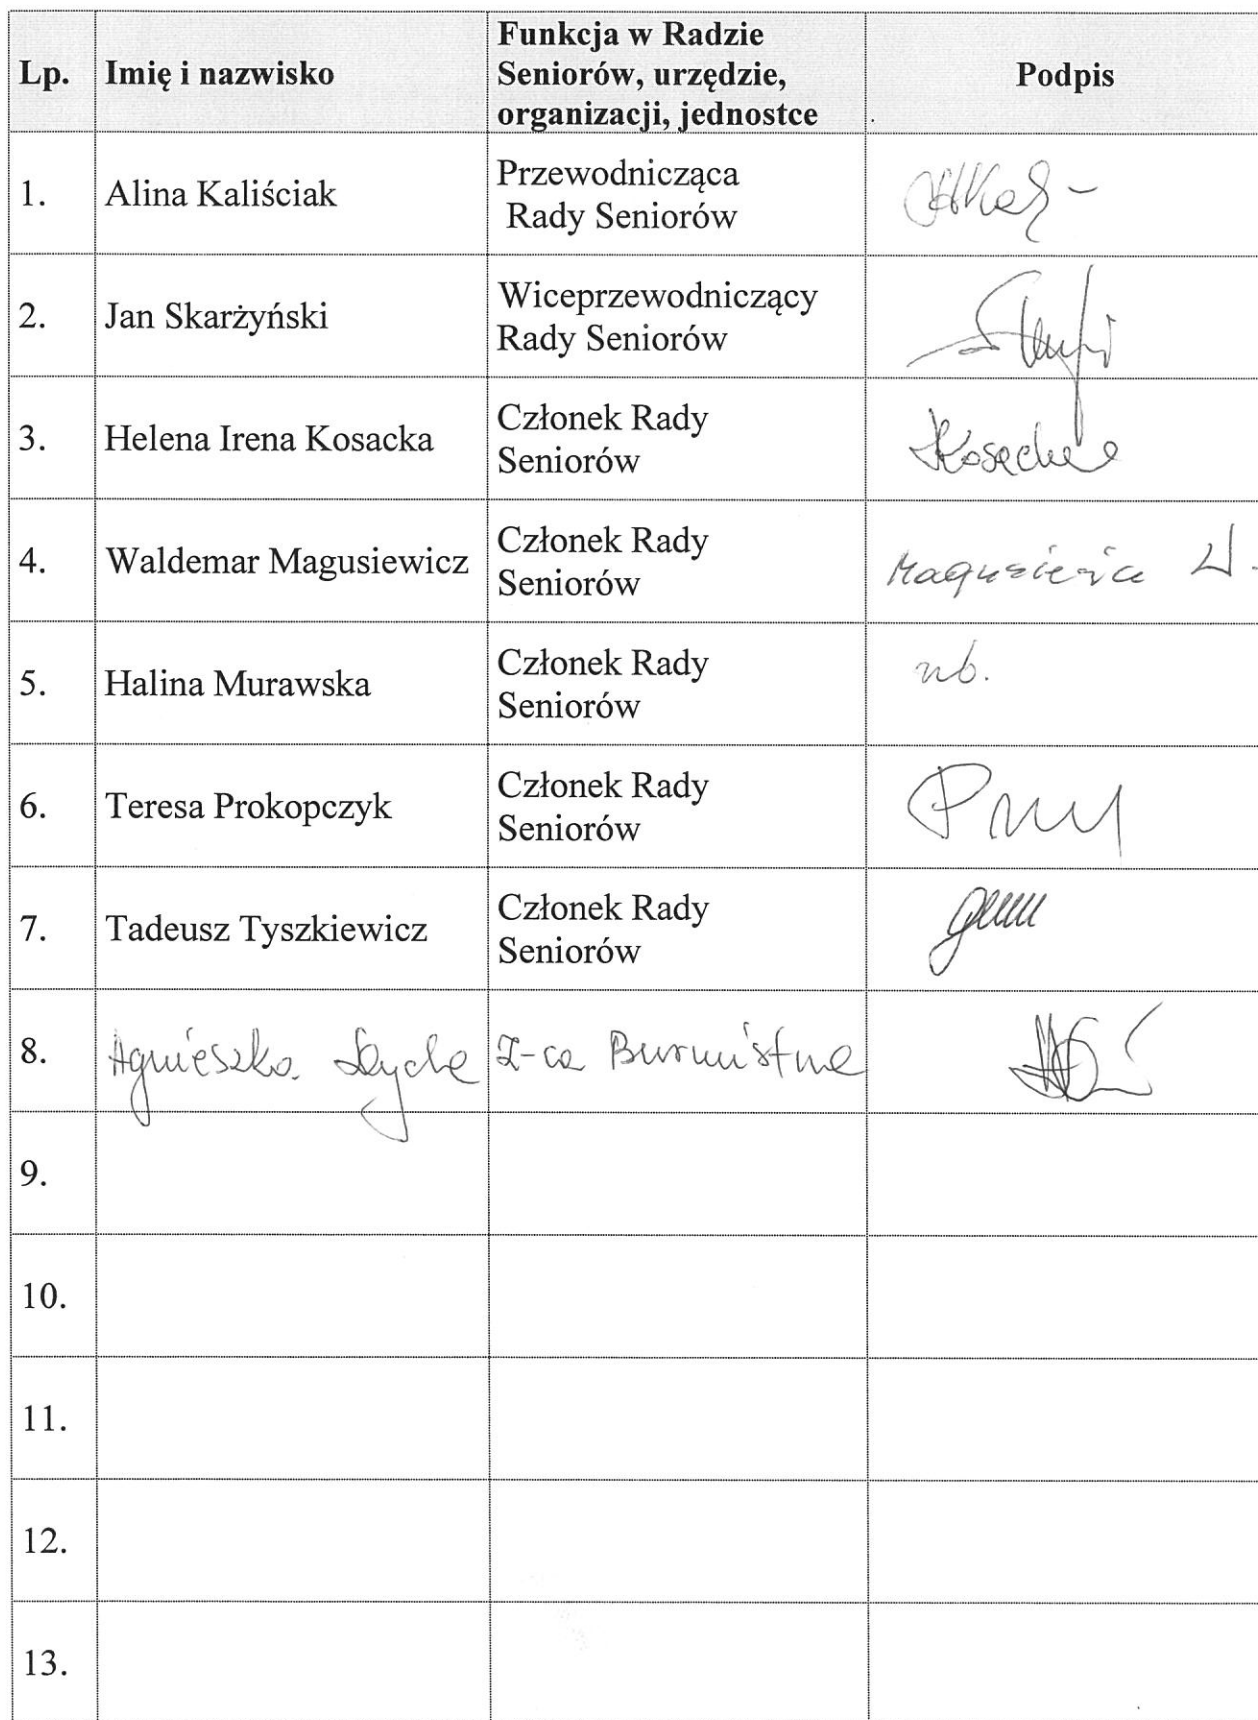 Lp. Imię i nazwisko Funkcja w Radzie Seniorów, urzędzie, organizacji, jednostce Podpis
1. Alina Kaliściak Przewodnicząca
Rady Seniorów
2. Jan Skarżyński Wiceprzewodniczący
Rady Seniorów
3. Helena Irena Kosacka Członek Rady
Seniorów
4. Waldemar Magusiewicz Członek Rady
Seniorów
5. Halina Murawska Członek Rady
Seniorów nb.
6. Teresa Prokopczyk Członek Rady
Seniorów
7. Tadeusz Tyszkiewicz Członek Rady
Seniorów
8. Agnieszka Z-ca Burmistrza
9.
10.
11.
12.
13.